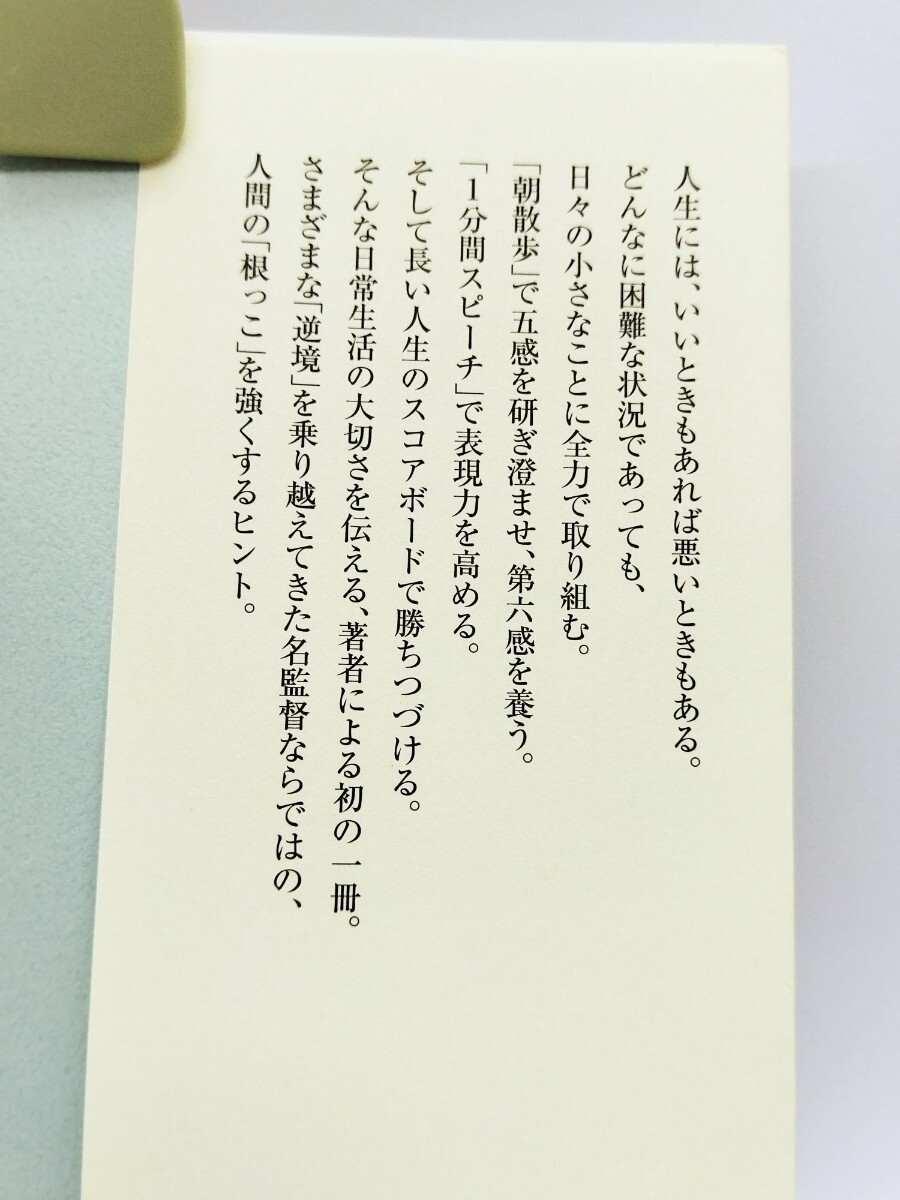 人生には、いいときもあれば悪いときもある。
どんなに困難な状況であっても、
日々の小さなことに全力で取り組む。
「朝散歩」で五感を研ぎ澄ませ、第六感を養う。
「1分間スピーチ」で表現力を高める。
そして長い人生のスコアボードで勝ちつづける。
そんな日常生活の大切さを伝える、著者による初の一冊。
さまざまな「逆境」を乗り越えてきた名監督ならではの、
人間の「根っこ」を強くするヒント。